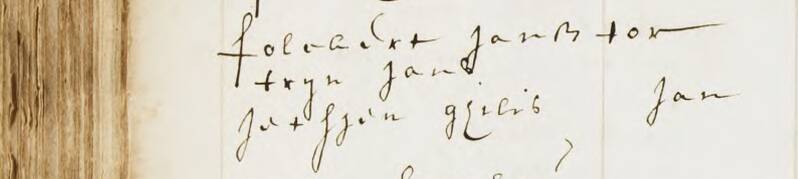 folckert Janß tor
tryn Jans
Jethjen gilis Jan